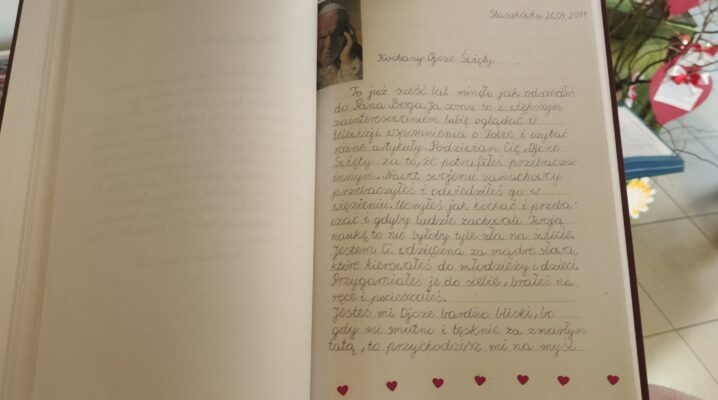 Staszkówka 26.04.2011
Kochany Ojcze Święty
To już sześć lat minęło jak odszedłeś
do Pana Boga. Ja coraz to z większym
zainteresowaniem lubię oglądać w
telewizji wspomnienia o Tobie i czytać
różne artykuły. Podziwiam Cię, Ojcze
Święty za to, że potrafiłeś przebaczać
innym. Nawet swojemu zamachowcy
przebaczyłeś i odwiedziłeś go w
więzieniu. Uczyłeś jak kochać i przeba-
czać i gdyby ludzie zachowali Twoją
naukę to nie byłoby tyle zła na świecie.
Jestem Ci wdzięczna za mądre słowa,
które kierowałeś do młodzieży i dzieci.
Przygarniałeś je do siebie, brałeś na
ręce i pocieszałeś.
Jesteś mi Ojcze bardzo bliski, bo
gdy mi smutno i tęsknię za zmarłym
tatą, to przychodzisz mi na myśl